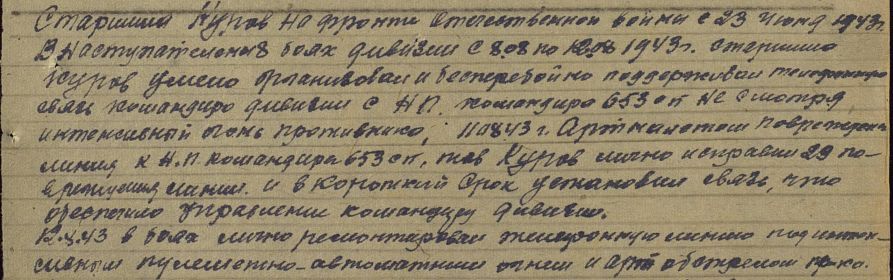 Старшина Куров на фронте отечественной войны с 23 июня 1943 г.
В наступательных боях дивизии с 8.08 по 12.08 1943 г. старшина
Куров умело организовал и бесперебойно поддерживал телефонную
связь командира дивизии с Н.П. командира 653 сп не смотря
интенсивный огонь противника, 11.08.43 г. Артналетом повреждена
линия, к Н.П. командира 653 сп, тов Куров лично исправил 29 по-
вреждения линии и в короткий срок установил связь, что
обеспечило управление командиру дивизии.
12.8.43 в боях лично ремонтировал телефонную линию под интен-
сивным пулеметно-автоматным огнем и арт обстрелом